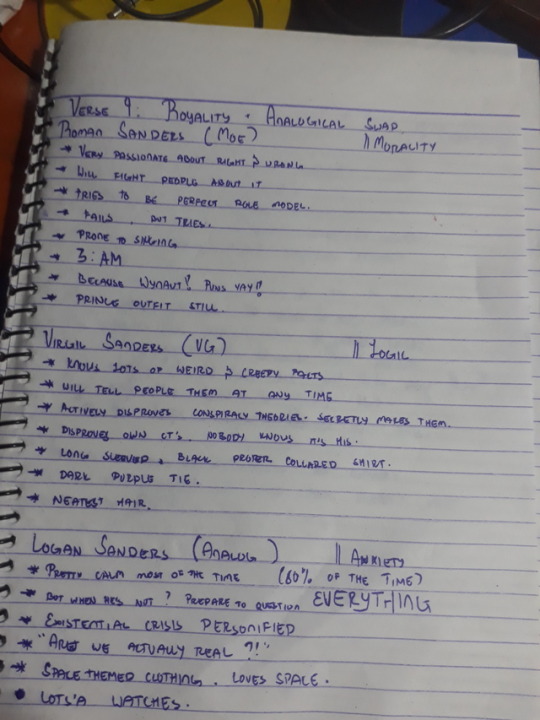 VERSE 9: ROYALITY + ANALOGICAL SWAP
ROMAN SANDERS (MOE) || MORALITY
→ VERY PASSIONATE ABOUT RIGHT & WRONG
→ WILL FIGHT PEOPLE ABOUT IT
→ TRIES TO BE PERFECT ROLE MODEL.
→ FAILS, BUT TRIES.
→ PRONE TO SINGING
→ 3:AM
→ BECAUSE WYNAUT!! PUNS YAY!!
→ PRINCE OUTFIT STILL.
VIRGIL SANDERS (VG) || LOGIC
→ KNOWS LOTS OF WEIRD & CREEPY FACTS
→ WILL TELL PEOPLE THEM AT ANY TIME
→ ACTIVELY DISPROVES CONSPIRACY THEORIES. SECRETLY MAKES THEM.
→ DISPROVES OWN CT'S. NOBODY KNOWS IT'S HIS.
→ LONG SLEEVED, BLACK PROPER COLLARED SHIRT.
→ DARK PURPLE TIE.
→ NEATEST HAIR.
LOGAN SANDERS (ANALOG) || ANXIETY
* PRETTY CALM MOST OF THE TIME (60% OF THE TIME)
* BUT WHEN HE'S NOT? PREPARE TO QUESTION EVERYTHING
* EXISTENTIAL CRISIS PERSONIFIED
* "ARE WE ACTUALLY REAL ?!"
* SPACE THEMED CLOTHING. LOVES SPACE.
• LOTS'A WATCHES.